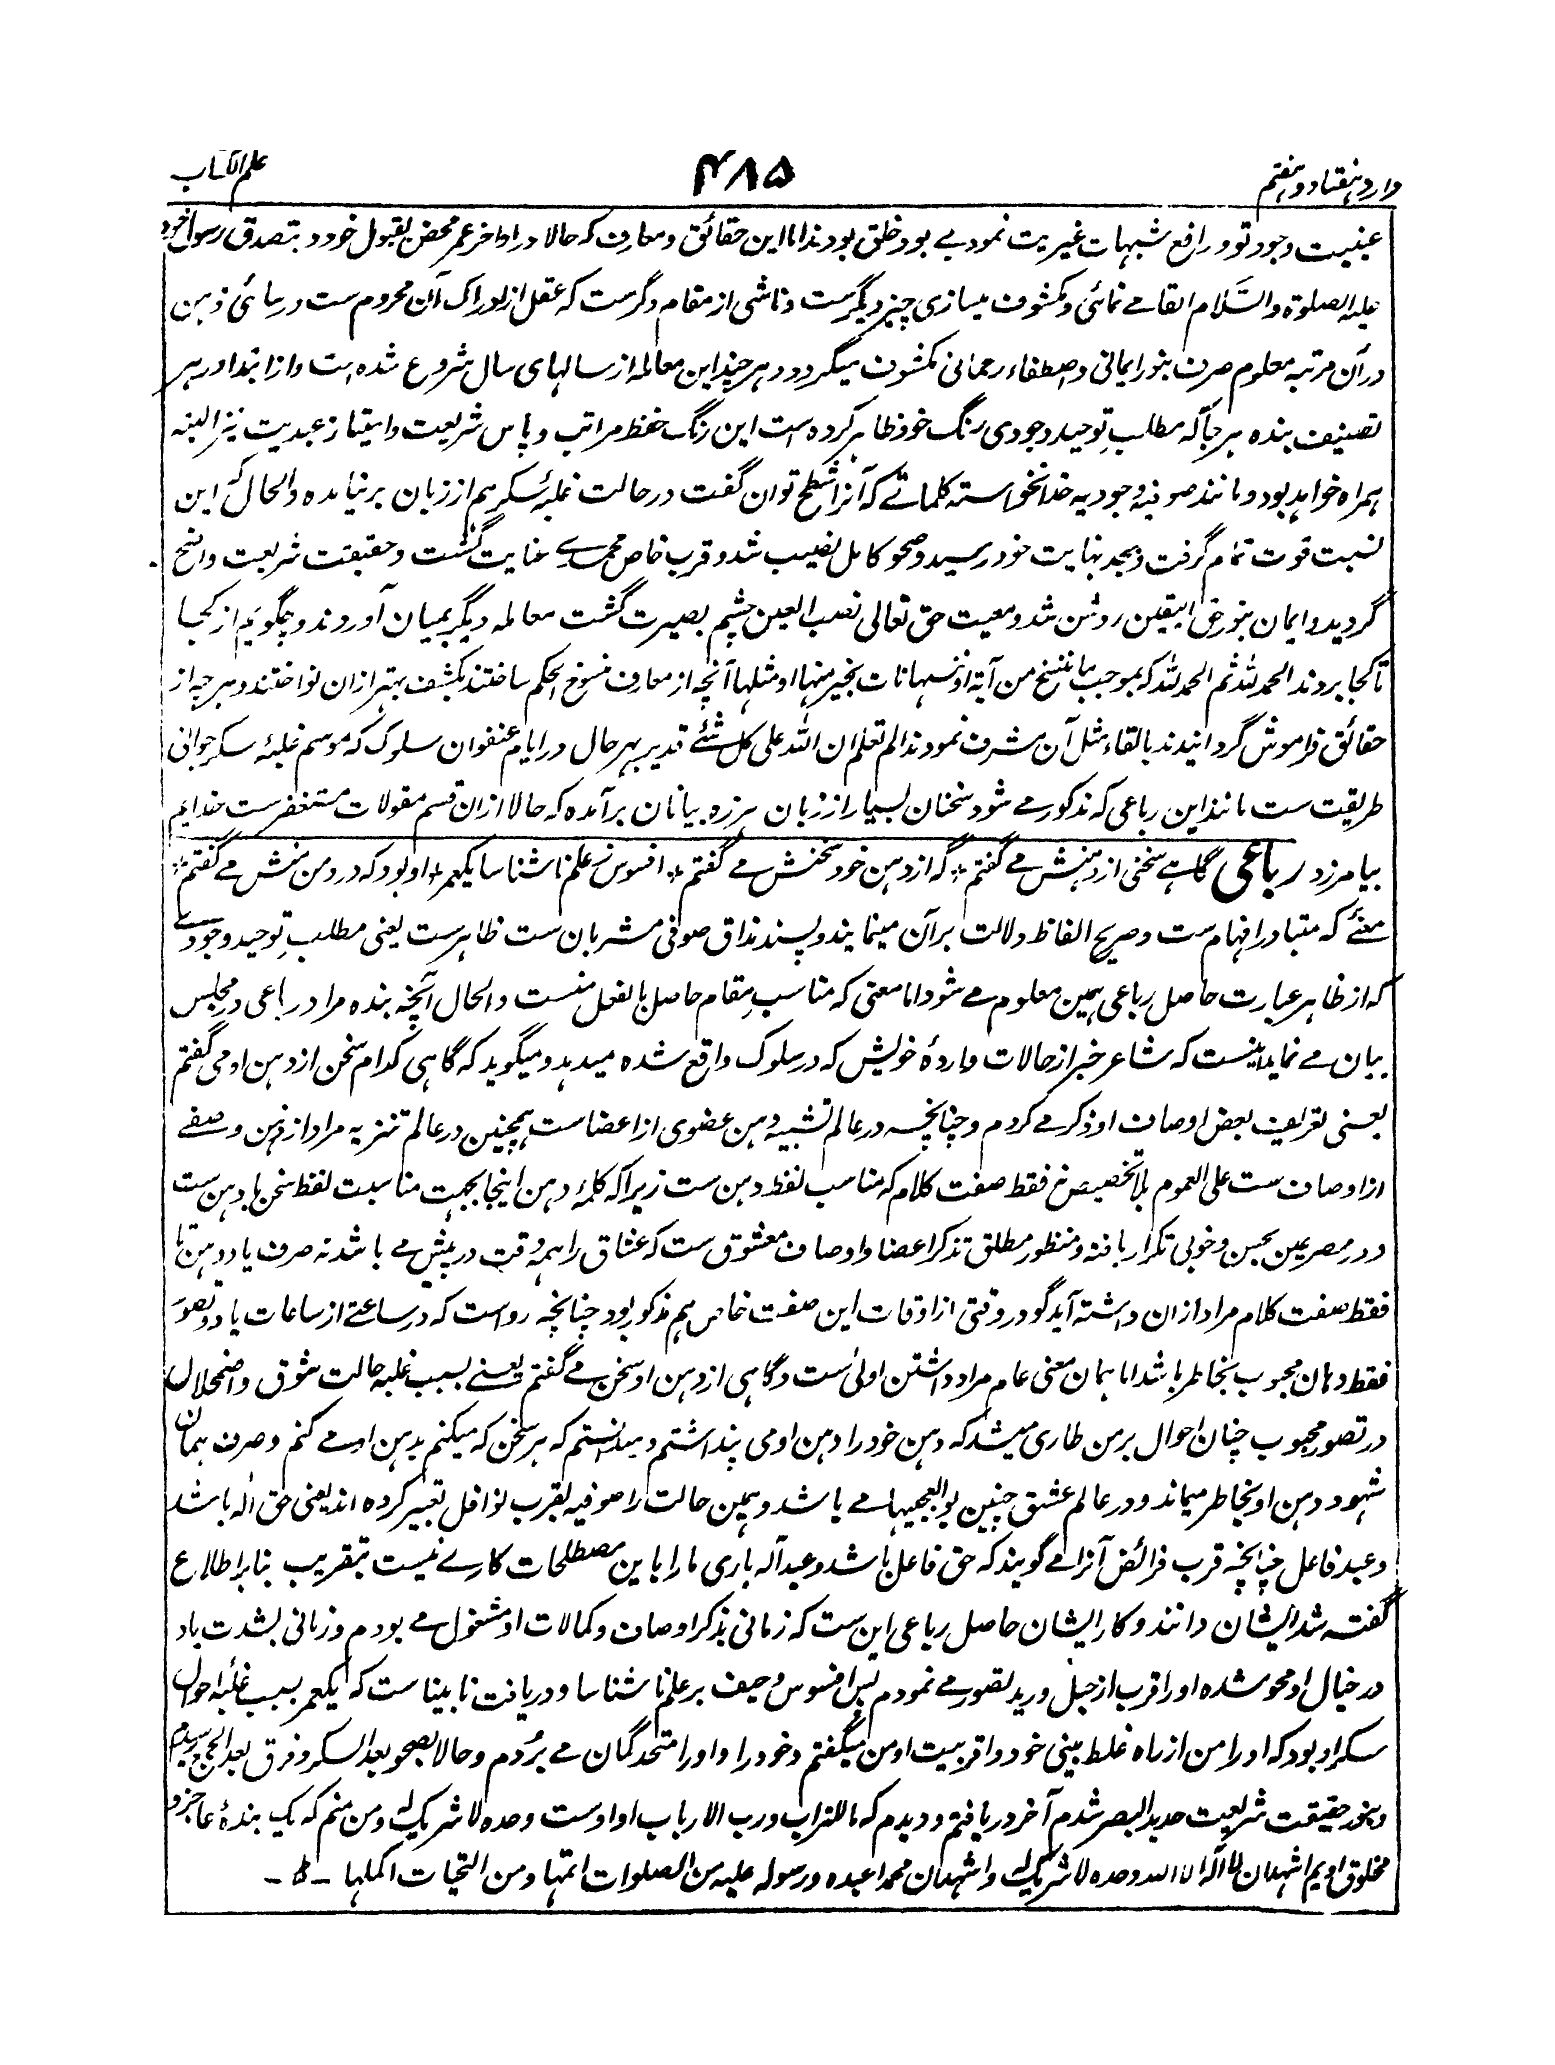 وارد هفتاد و هفتم
۴۸۵
علم الکتاب
عینیت وجود تو و رافع شبهات غیریت نمود بے بود خلق بودند اما این حقائق و معارف که حالا در اواخر عمر محض بقبول خود و بتصدق رسول خود
علیه الصلوة والسلام القا مے نمائی و مکشوف میسازی چیز دیگرست و ناشی از مقام دگرست که عقل از ادراک آن محروم ست و رسائی ذہن
در آن مرتبه معلوم صرف بنور ایمانی و اصطفاء رحمانی مکشوف میگردد و ہر چند این معاملہ از سالہای سال شروع شده است و از ابتدا در ہر
تصنیف بنده ہر جا کہ مطلب توحید وجودی رنگ خود ظاہر کرده است این رنگ حفظ مراتب و پاس شریعت و امتیاز عبدیت نیز البتہ
ہمراه خواہد بود و مانند صوفیہ وجودیہ خدا نخواستہ کلماتے کہ آنرا شطح توان گفت در حالت غلبۂ سکر ہم از زبان بر نیامده والحال کہ این
نسبت قوت تمام گرفت و بحد نہایت خود رسید و صحو کامل نصیب شد و قرب خاص محمدی عنایت گشت و حقیقت شریعت واضح
گردید و ایمان بنور حق الیقین روشن شد و معیت حق تعالی نصب العین چشم بصیرت گشت معاملہ دیگر بمیان آوردند و چگویم از کجا
تا کجا بردند الحمد للہ ثم الحمد للہ کہ بموجب ما ننسخ من آیة او ننسہا نات بخیر منہا او مثلہا آنچہ از معارف منسوخ الحکم ساختند بکشف بہتر ازان نواختند و ہر چہ از
حقائق فراموش گردانیدند بالقاء مثل آن مشرف نمودند الم تعلم ان اللہ علی کل شئے قدیر بہر حال در ایام عنفوان سلوک کہ موسم غلبۂ سکر جوانی
طریقت ست مانند این رباعی کہ مذکور مے شود سخنان بسیار از زبان ہرزه بیانان برآمده کہ حالا ازان قسم مقولات مستغفرست خدایم
بیامرزد رباعی گاہے سخنی از دہنش مے گفتم * گہ از دہن خود سخنش مے گفتم * افسوس ز علم ناشناسا یکعمر * او بود کہ در من منش مے گفتم *
معنے کہ متبادر افہام ست و صریح الفاظ دلالت بر آن مینمایند و پسند مذاق صوفی مشربان ست ظاہرست یعنی مطلب توحید وجودے
کہ از ظاہر عبارت حاصل رباعی ہمین معلوم مے شود اما معنی کہ مناسب مقام حاصل بالفعل منست والحال آنچہ بنده مراد رباعی در مجلس
بیان مے نماید اینست کہ شاعر خبر از حالات واردۂ خویش کہ در سلوک واقع شده میدہد و میگوید کہ گاہی کدام سخن از دہن او می گفتم
یعنی تعریف بعض اوصاف او ذکر مے کردم و چنانچہ در عالم تشبیہ دہن عضوی از اعضاست ہمچنین در عالم تنزیہ مراد از دہن وصفے
از اوصاف ست علی العموم بلا تخصیص نہ فقط صفت کلام کہ مناسب لفظ دہن ست زیرا کہ کلمۂ دہن اینجا بجہت مناسبت لفظ سخن با دہن ست
و در مصرعین بحسن و خوبی تکرار یافتہ و منظور مطلق تذکر اعضا و اوصاف معشوق ست کہ عشاق را ہمہ وقت در پیش مے باشد نہ صرف یاد دہن تا
فقط صفت کلام مراد ازان داشتہ آید گو در وقتی از اوقات این صفت خاص ہم مذکور بود چنانچہ رواست کہ در ساعتے از ساعات یاد و تصور
فقط دہان محبوب بخاطر باشد اما ہمان معنی عام مراد داشتن اولی ست و گاہی از دہن او سخن مے گفتم یعنے بسبب غلبہ حالت شوق و اضمحلال
در تصور محبوب چنان احوال بر من طاری میشد کہ دہن خود را دہن او می پنداشتم و میدانستم کہ ہر سخن کہ میکنم بدہن او مے کنم و صرف ہمان
شہود دہن او بخاطر میماند و در عالم عشق چنین بوالعجبیہا مے باشد و ہمین حالت را صوفیہ بقرب نوافل تعبیر کرده اند یعنی حق آلہ باشد
و عبد فاعل چنانچہ قرب فرائض آنرا مے گویند کہ حق فاعل باشد و عبد آلہ باری ما را باین مصطلحات کارے نیست بتقریب بنابر اطلاع
گفتہ شد ایشان دانند و کار ایشان حاصل رباعی این ست کہ زمانی بذکر اوصاف و کمالات او مشغول مے بودم و زمانی بشدت یاد
در خیال او محو شده او را اقرب از حبل ورید تصور مے نمودم پس افسوس و حیف بر علم ناشناسا و دریافت نابیناست کہ یکعمر بسبب غلبۂ احوال
سکر او بود کہ او را من از راه غلط بینی خود و اقربیت او من میگفتم و خود را و او را متحد گمان مے بردم و حالا بصحو بعد السکر و فرق بعد الجمع رسیدم
و بنور حقیقت شریعت حدید البصر شدم آخر دریافتم و دیدم کہ ما للتراب و رب الارباب او اوست وحده لا شریک لہ و من منم کہ یک بندۂ عاجز و
مخلوق اویم اشہد ان لا الہ الا اللہ وحده لا شریک لہ و اشہد ان محمدا عبده و رسولہ علیہ من الصلوات اتمہا و من التحیات اکملہا - ط -